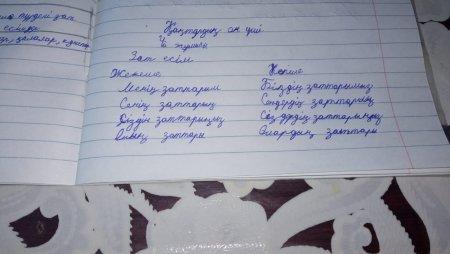 зат
есімі
қалалар,
Қаңтардың он үші
Үй жұмысы
Зат есім
Жекеше Көпше
Менің заттарым Біздің заттарымыз
Сенің заттарың Сендердің заттарың
Сіздің заттарыңыз Сіздердің заттарыңыз
Оның заттары Олардың заттары